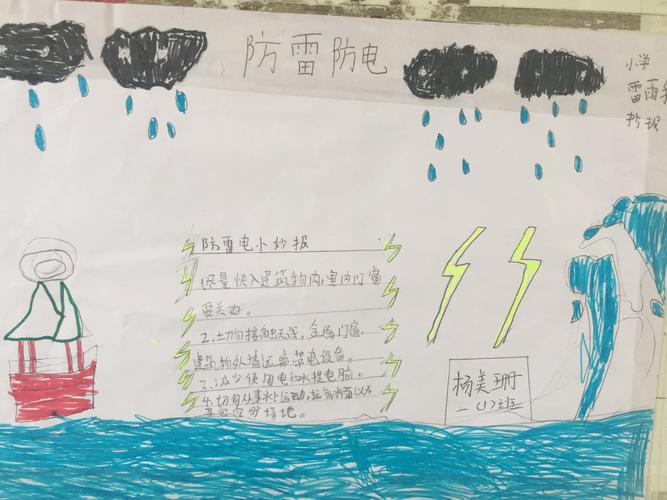 防雷防电
小学
雷雨
抄报
防雷电小妙报
尽量快入建筑物内,室内门窗
要关好。
2.土刀勿接触天线,金属门窗,
建筑物外墙远离带电设备。
3.减少使用电和水提电脑。
4.切勿从事水上运动,
场地。
杨美珊
一(1)班